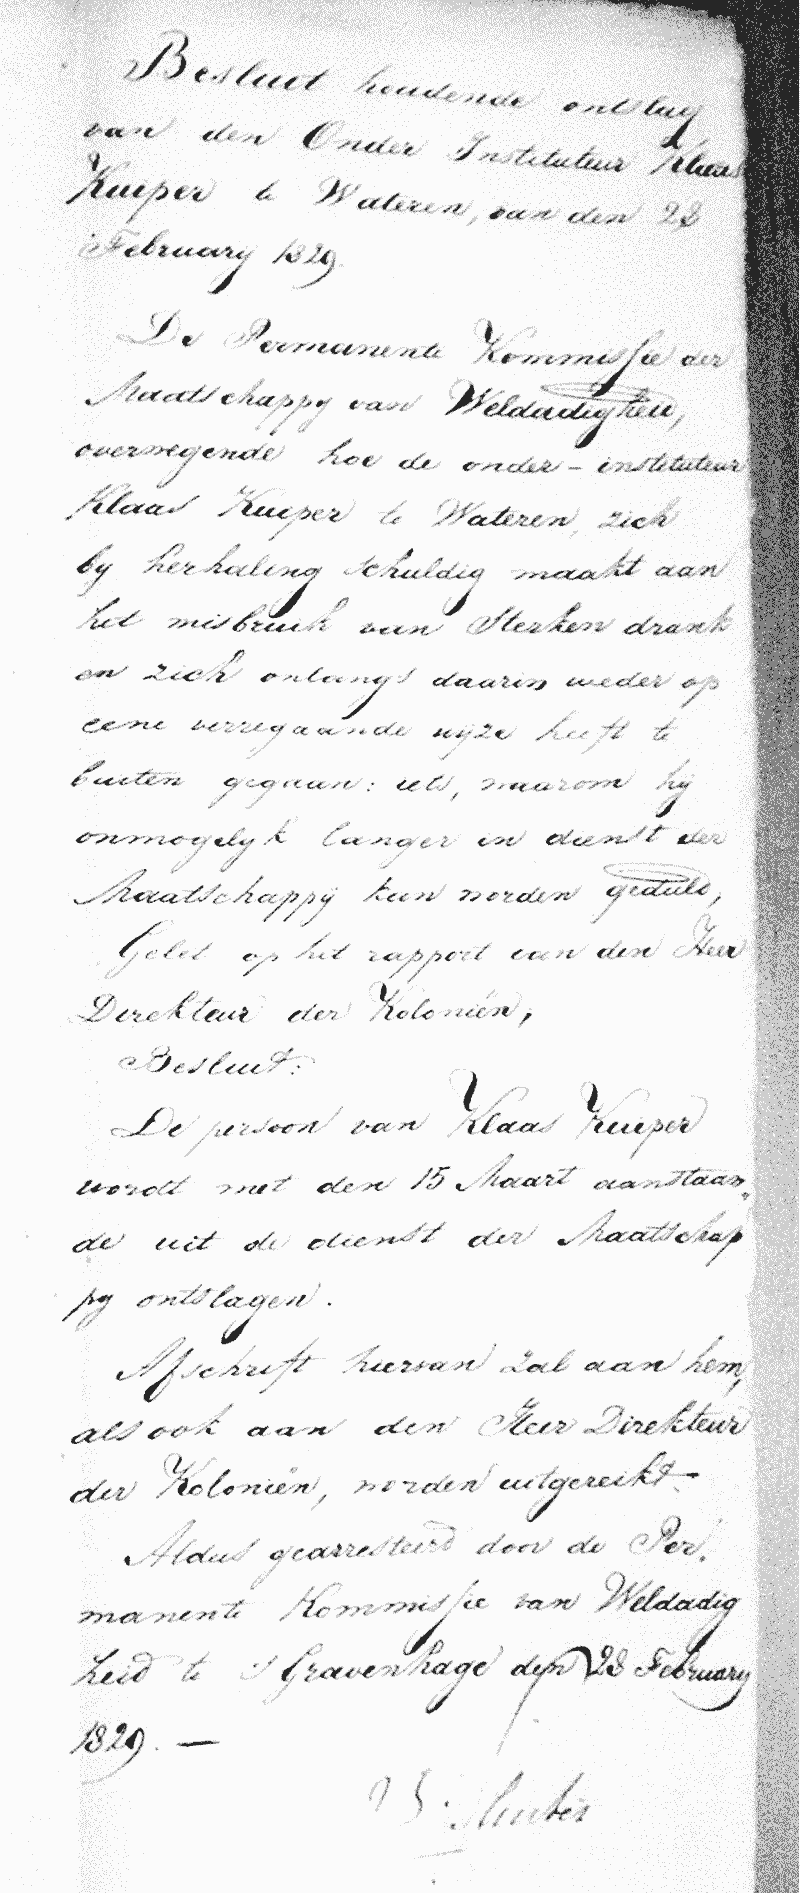 Besluit houdende ontslag
van den Onder Instituteur Klaas
Kuiper te Wateren, van den 28
February 1829.
De Permanente Kommissie der
Maatschappy van Weldadigheid,
overwegende hoe de onder-instituteur
Klaas Kuiper te Wateren, zich
by herhaling schuldig maakt aan
het misbruik van Sterken drank
en zich onlangs daarin weder op
eene verregaande wijze heeft te
buiten gegaan: iets, waarom hij
onmogelyk langer in dienst der
Maatschappij kan worden geduld,
Gelet op het rapport van den Heer
Direkteur der Koloniën,
Besluit:
De persoon van Klaas Kuiper
wordt met den 15 Maart aanstaan
de uit de dienst der Maatschap
py ontslagen.
Afschrift hiervan zal aan hem,
als ook aan den Heer Direkteur
der Koloniën, worden uitgereikt.
Aldus gearresteerd door de Per.
manente Kommissie van Weldadig
heid te 's Gravenhage den 28 February
1829. —